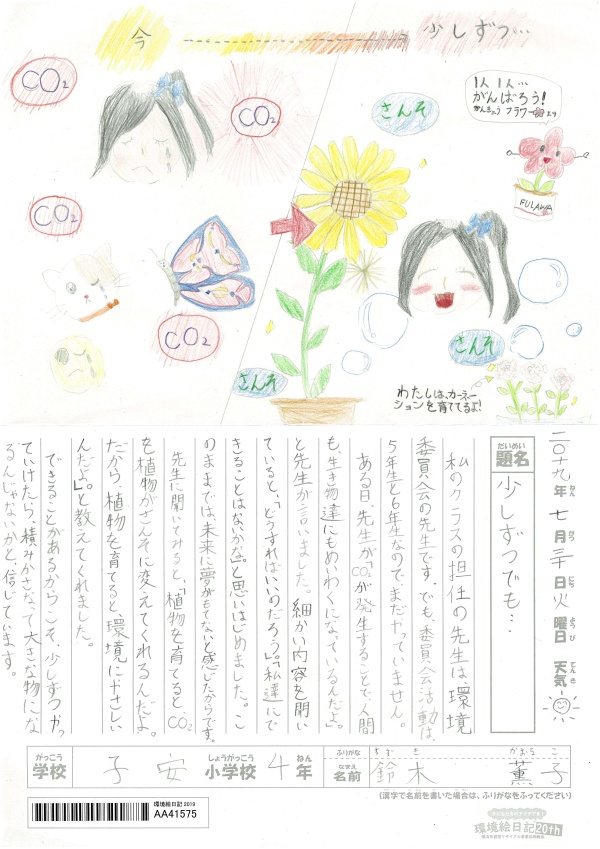 今
少しずつ…
CO2
CO2
CO2
CO2
さんそ
さんそ
さんそ
1人1人…
がんばろう!
かんきょうフラワーより
FULAWA
わたしは、カーネー
ションを育ててるよ!
二〇一九年七月三十日火曜日 天気
ねん がつ にち ようび てんき
だいめい
題名
少しずつでも…
私のクラスの担任の先生は、環境
委員会の先生です。でも、委員会活動は、
5年生と6年生なので、まだやっていません。
ある日、先生が「CO2が発生することで、人間
も、生き物達にもめいわくになっているんだよ。」
と先生が言いました。細かい内容を聞い
ていると、「どうすればいいのだろう。」「私達にで
きることはないかな。」と思いはじめました。こ
のままでは、未来に夢がもてないと感じたからです。
先生に聞いてみると、「植物を育てると、CO2
を植物がさんそに変えてくれるんだよ。
だから、植物を育てると、環境にやさしい
んだよ。」と教えてくれました。
できることがあるからこそ、少しずつやっ
ていけたら、積みかさなって大きな物にな
るんじゃないかと、信じています。
がっこう しょうがっこう ねん
学校 子安 小学校 4年
ふりがな すずき かおるこ
なまえ
名前 鈴木 薫子
(漢字で名前を書いた場合は、ふりがなをふってください)
環境絵日記 2019
AA41575
環境絵日記 20th